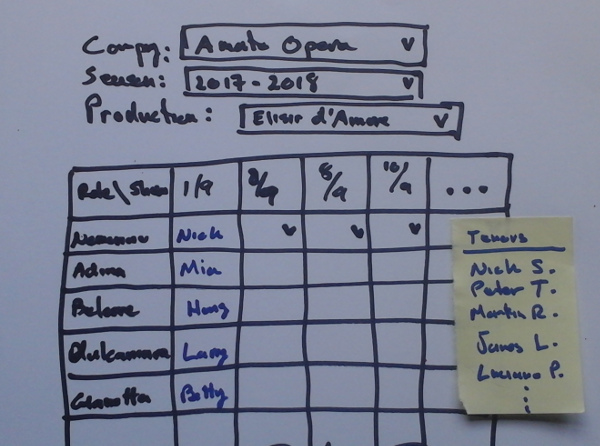 Compny: Amato Opera v
Season: 2017-2018 v
Production: Elisir d'Amore v
Role\Show 1/9 8/9 10/9 ...
Nemorino Nick v v v
Adina Mia
Belcore Hong
Dulcamara Larry
Gianotta Betty
Tenors
Nick S.
Peter T.
Martin R.
James L.
Luciano P.